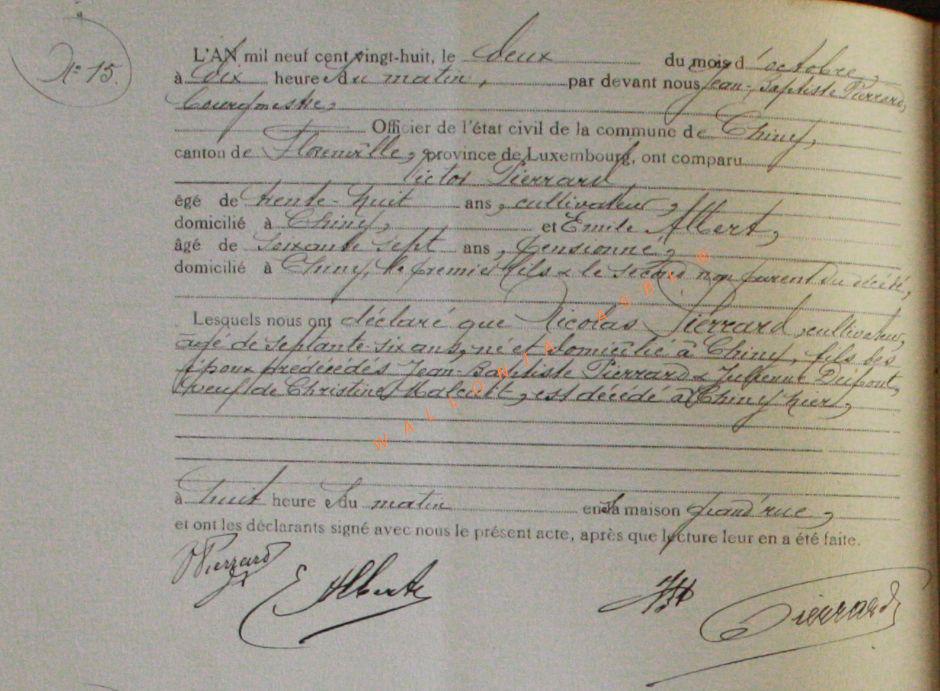 Nº 15.
L'AN mil neuf cent vingt-huit, le deux du mois d'octobre,
à dix heures du matin, par devant nous Jean-Baptiste Pierrard,
bourgmestre,
Officier de l'état civil de la commune de Chiny,
canton de Florenville, province de Luxembourg, ont comparu
Victor Pierrard,
égé de trente-huit ans, cultivateur,
domicilié à Chiny, et Emile Albert,
âgé de soixante sept ans, pensionné,
domicilié à Chiny, le premier fils & le second non parent du décédé,
Lesquels nous ont déclaré que Nicolas Pierrard, cultivateur,
agé de septante-six ans, né et domicilié à Chiny, fils des
époux prédécédés Jean-Baptiste Pierrard & Julienne Dupont,
veuf de Christine Malcutt, est décédé à Chiny hier,
à huit heures du matin en sa maison grand'rue,
et ont les déclarants signé avec nous le présent acte, après que lecture leur en a été faite.
V Pierrard
E Albert
Pierrard
WALLONIA ASBL ©